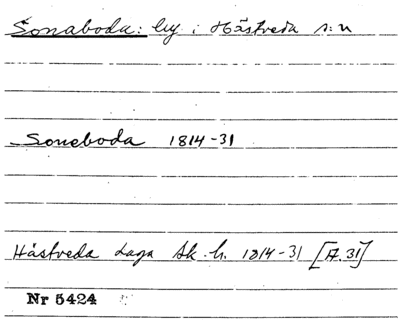 Sonaboda: by i Hästveda s:n
Soneboda 1814-31
Hästveda laga sk. h. 1814-31 [A.31]
Nr 5424